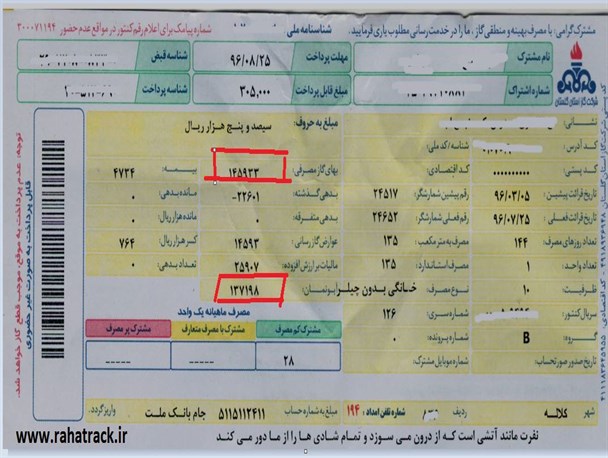 مشترک گرامی: با مصرف بهینه و منطقی گاز، ما را در خدمت رسانی مطلوب یاری فرمایید. شناسنامه ملی
شماره پیامک برای اعلام رقم کنتور در مواقع عدم حضور ۳۰۰۰۷۱۱۹۴
نام مشترک
مهلت پرداخت ۹۶/۰۸/۲۵
شناسه قبض
شماره اشتراک
مبلغ قابل پرداخت ۳۰۵,۰۰۰
شناسه پرداخت
شرکت گاز استان گلستان
نشانی:
مبلغ به حروف: سیصد و پنج هزار ریال
کد آدرس: شناسه/کد ملی:
کد پستی: ۰۰۰۰۰۰۰۰۰۰ کد اقتصادی:
بهای گاز مصرفی: ۱۴۵۹۳۳ بیمه: ۴۷۳۴
تاریخ قرائت پیشین: ۹۶/۰۳/۰۵ رقم پیشین شمارشگر: ۲۴۵۱۷
بدهی گذشته: -۲۲۶۰۱ مانده بدهی: ۰
تاریخ قرائت فعلی: ۹۶/۰۷/۲۵ رقم فعلی شمارشگر: ۲۴۶۵۲
بدهی متفرقه: ۰ مانده هزار ریال: ۰
تعداد روزهای مصرف: ۱۴۴ مصرف به متر مکعب: ۱۳۵
عوارض گاز رسانی: ۱۴۵۹۳ کسر هزار ریال: ۷۶۴
تعداد واحد: ۱ مصرف استاندارد: ۱۳۵
مالیات بر ارزش افزوده: ۲۵۹۰۷ تعداد بدهی: ۰
ظرفیت: ۱۰ نوع مصرف: خانگی بدون چیلر
آبونمان: ۱۳۷۱۹۸
سریال کنتور: شماره سری: ۱۲۶
مصرف ماهیانه یک واحد
گروه: B شماره پرونده: ۰
مشترک کم مصرف مشترک با مصرف متعارف مشترک پر مصرف
تاریخ صدور صورتحساب: شماره موبایل مشترک:
۲۸ ----- -----
کلاله ردیف شماره تلفن امداد: ۱۹۴ مبلغ به شماره حساب ۵۱۱۵۱۱۲۴۱۱ جام بانک ملت واریز گردد.
نفرت مانند آتشی است که از درون می سوزد و تمام شادی ها را از ما دور می کند
توجه: عدم پرداخت به موقع، موجب قطع گاز خواهد شد.
قابل پرداخت به صورت غیر حضوری
www.rahatrack.ir